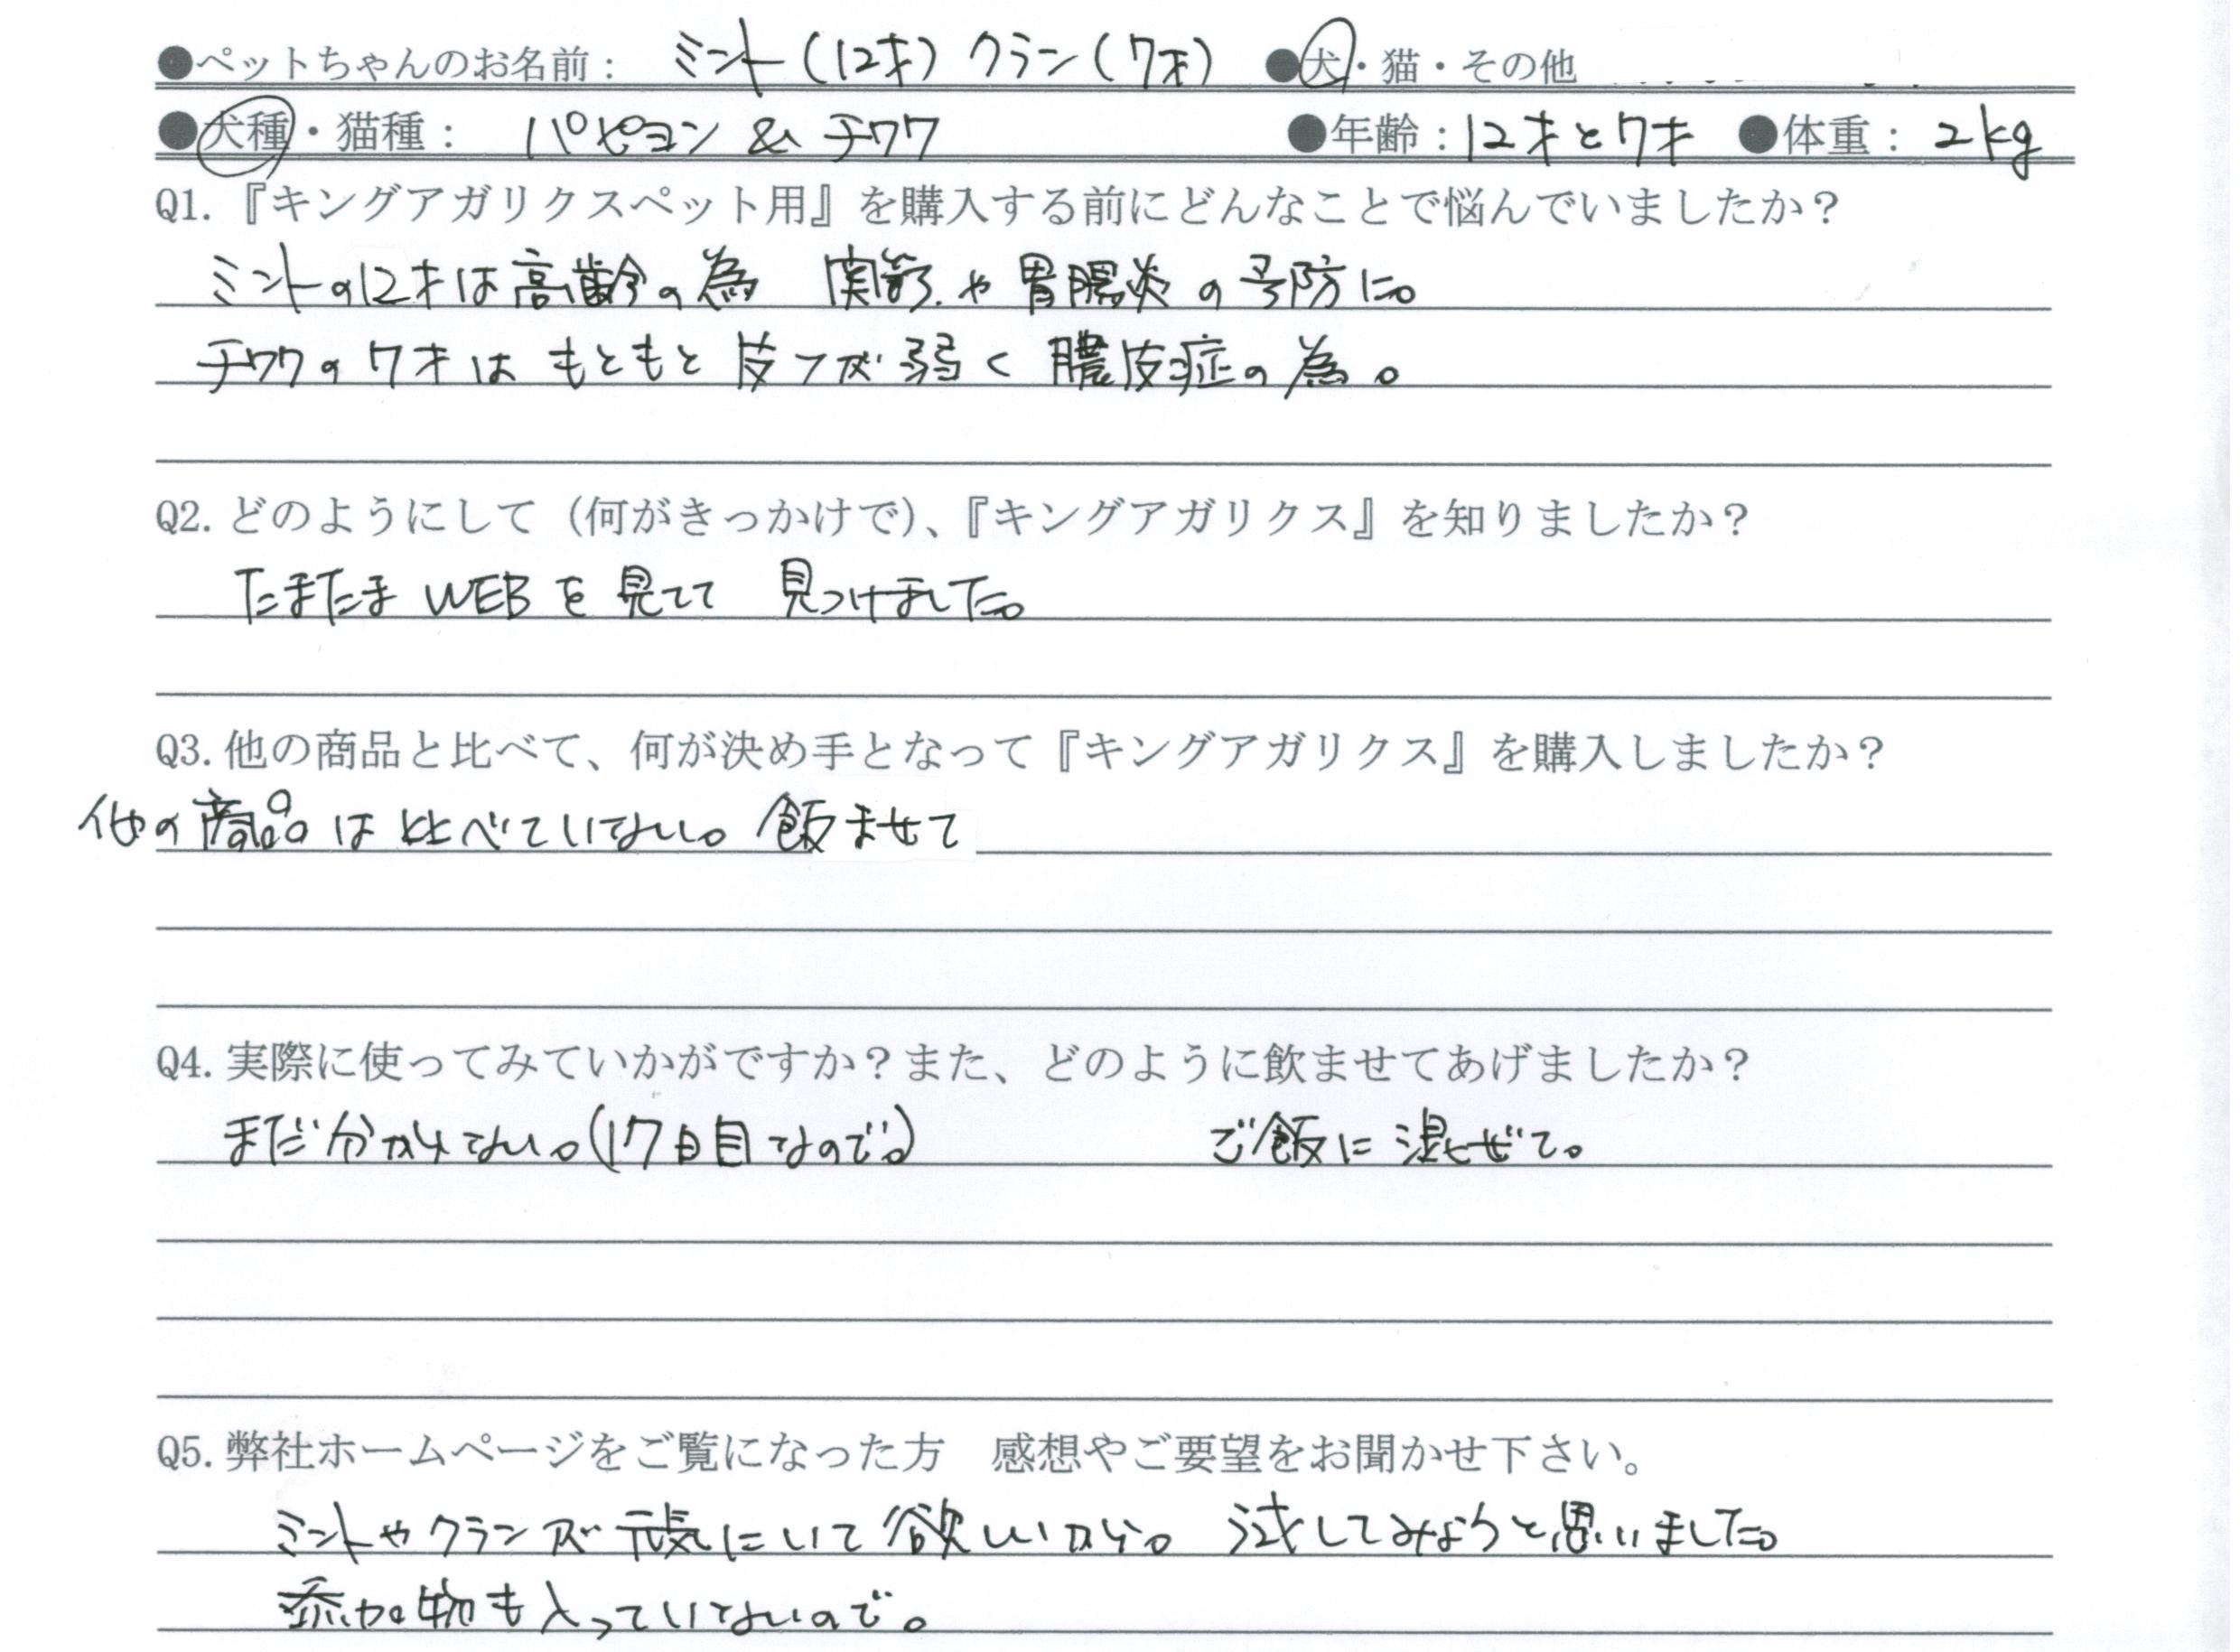 ●ペットちゃんのお名前： ミント（12才）クラン（7才） ●犬・猫・その他
●犬種・猫種： パピヨン & チワワ ●年齢：12才と7才 ●体重： 2kg
Q1.『キングアガリクスペット用』を購入する前にどんなことで悩んでいましたか？
ミントの12才は高齢の為 関節や胃腸炎の予防に。
チワワの7才は もともと皮フが弱く 膿皮症の為。
Q2.どのようにして（何がきっかけで）、『キングアガリクス』を知りましたか？
たまたま WEBを見てて 見つけました。
Q3.他の商品と比べて、何が決め手となって『キングアガリクス』を購入しましたか？
他の商品は比べていない。飲ませて
Q4.実際に使ってみていかがですか？また、どのように飲ませてあげましたか？
まだ分からない。（17日目なので。） ご飯に混ぜて。
Q5.弊社ホームページをご覧になった方 感想やご要望をお聞かせ下さい。
ミントやクランが元気にいて欲しいから。 試してみようと思いました。
添加物も入っていないので。